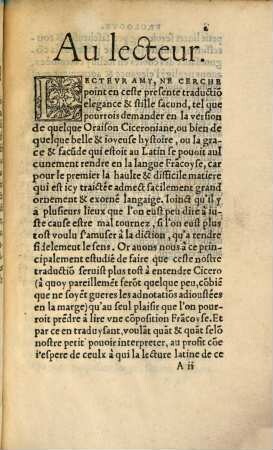 Au lecteur.
LECTEUR AMY, NE CERCHE
point en ceste presente traductiõ
elegance & stille facund, tel que
pourrois demander en la version
de quelque Oraison Ciceroniane, ou bien de
quelque belle & ioyeuse hystoire, ou la gra
ce & facũde qui estoit au Latin se pouoit aul
cunement rendre en la langue Frãcoyse, car
pour le premier la haulte & difficile matiere
qui est icy traictée admect facilement grand
ornement & exorné langaige. Ioinct qu'il y
a plusieurs lieux que l'on eust peu dire à iu-
ste cause estre mal tournez, si l'on eust plus
tost voulu s'amuser à la diction, qu'à rendre
fidelement le sens. Or auons nous à ce prin-
cipalement estudié de faire que ceste nostre
traductiõ seruist plus tost à entendre Cicero
(à quoy pareillemẽt ferõt quelque peu, cõbiẽ
que ne soyẽt gueres les adnotatiõs adioustées
en la marge) qu'au seul plaisir que l'on pour-
roit prẽdre à lire vne cõposition Frãcoyse. Et
par ce en traduysant, voulãt quãt & quãt selõ
nostre petit pouoir interpreter, au profit cõe
i'espere de ceulx à qui la lecture latine de ce
A ii